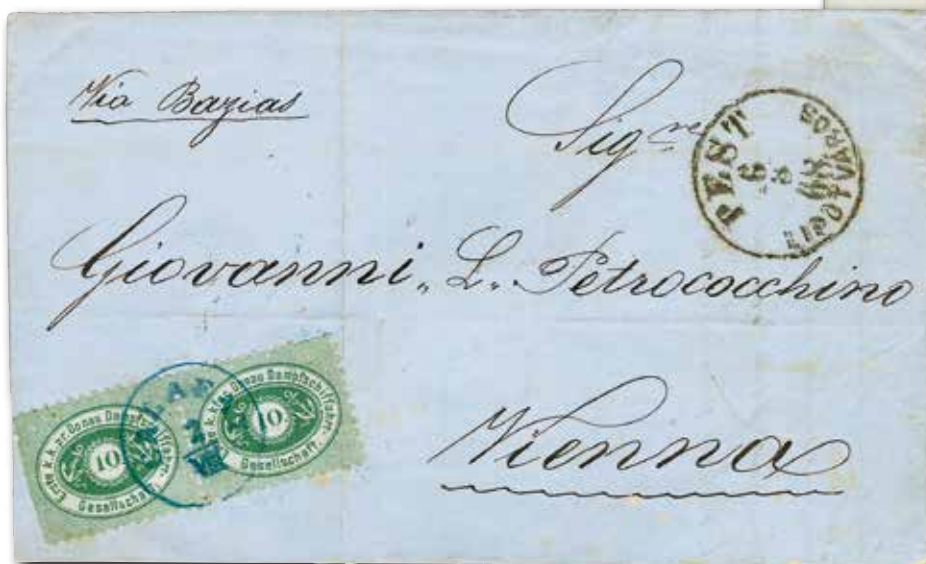 Via Bazias
Sig.re
PEST
6 8
69
VÁROS
Giovanni, L. Petrococchino
Vienna
Erste k.k. pr. Donau Dampfschiffahrt-
10
Gesellschaft.
Erste k.k. pr. Donau Dampfschiffahrt-
10
Gesellschaft.